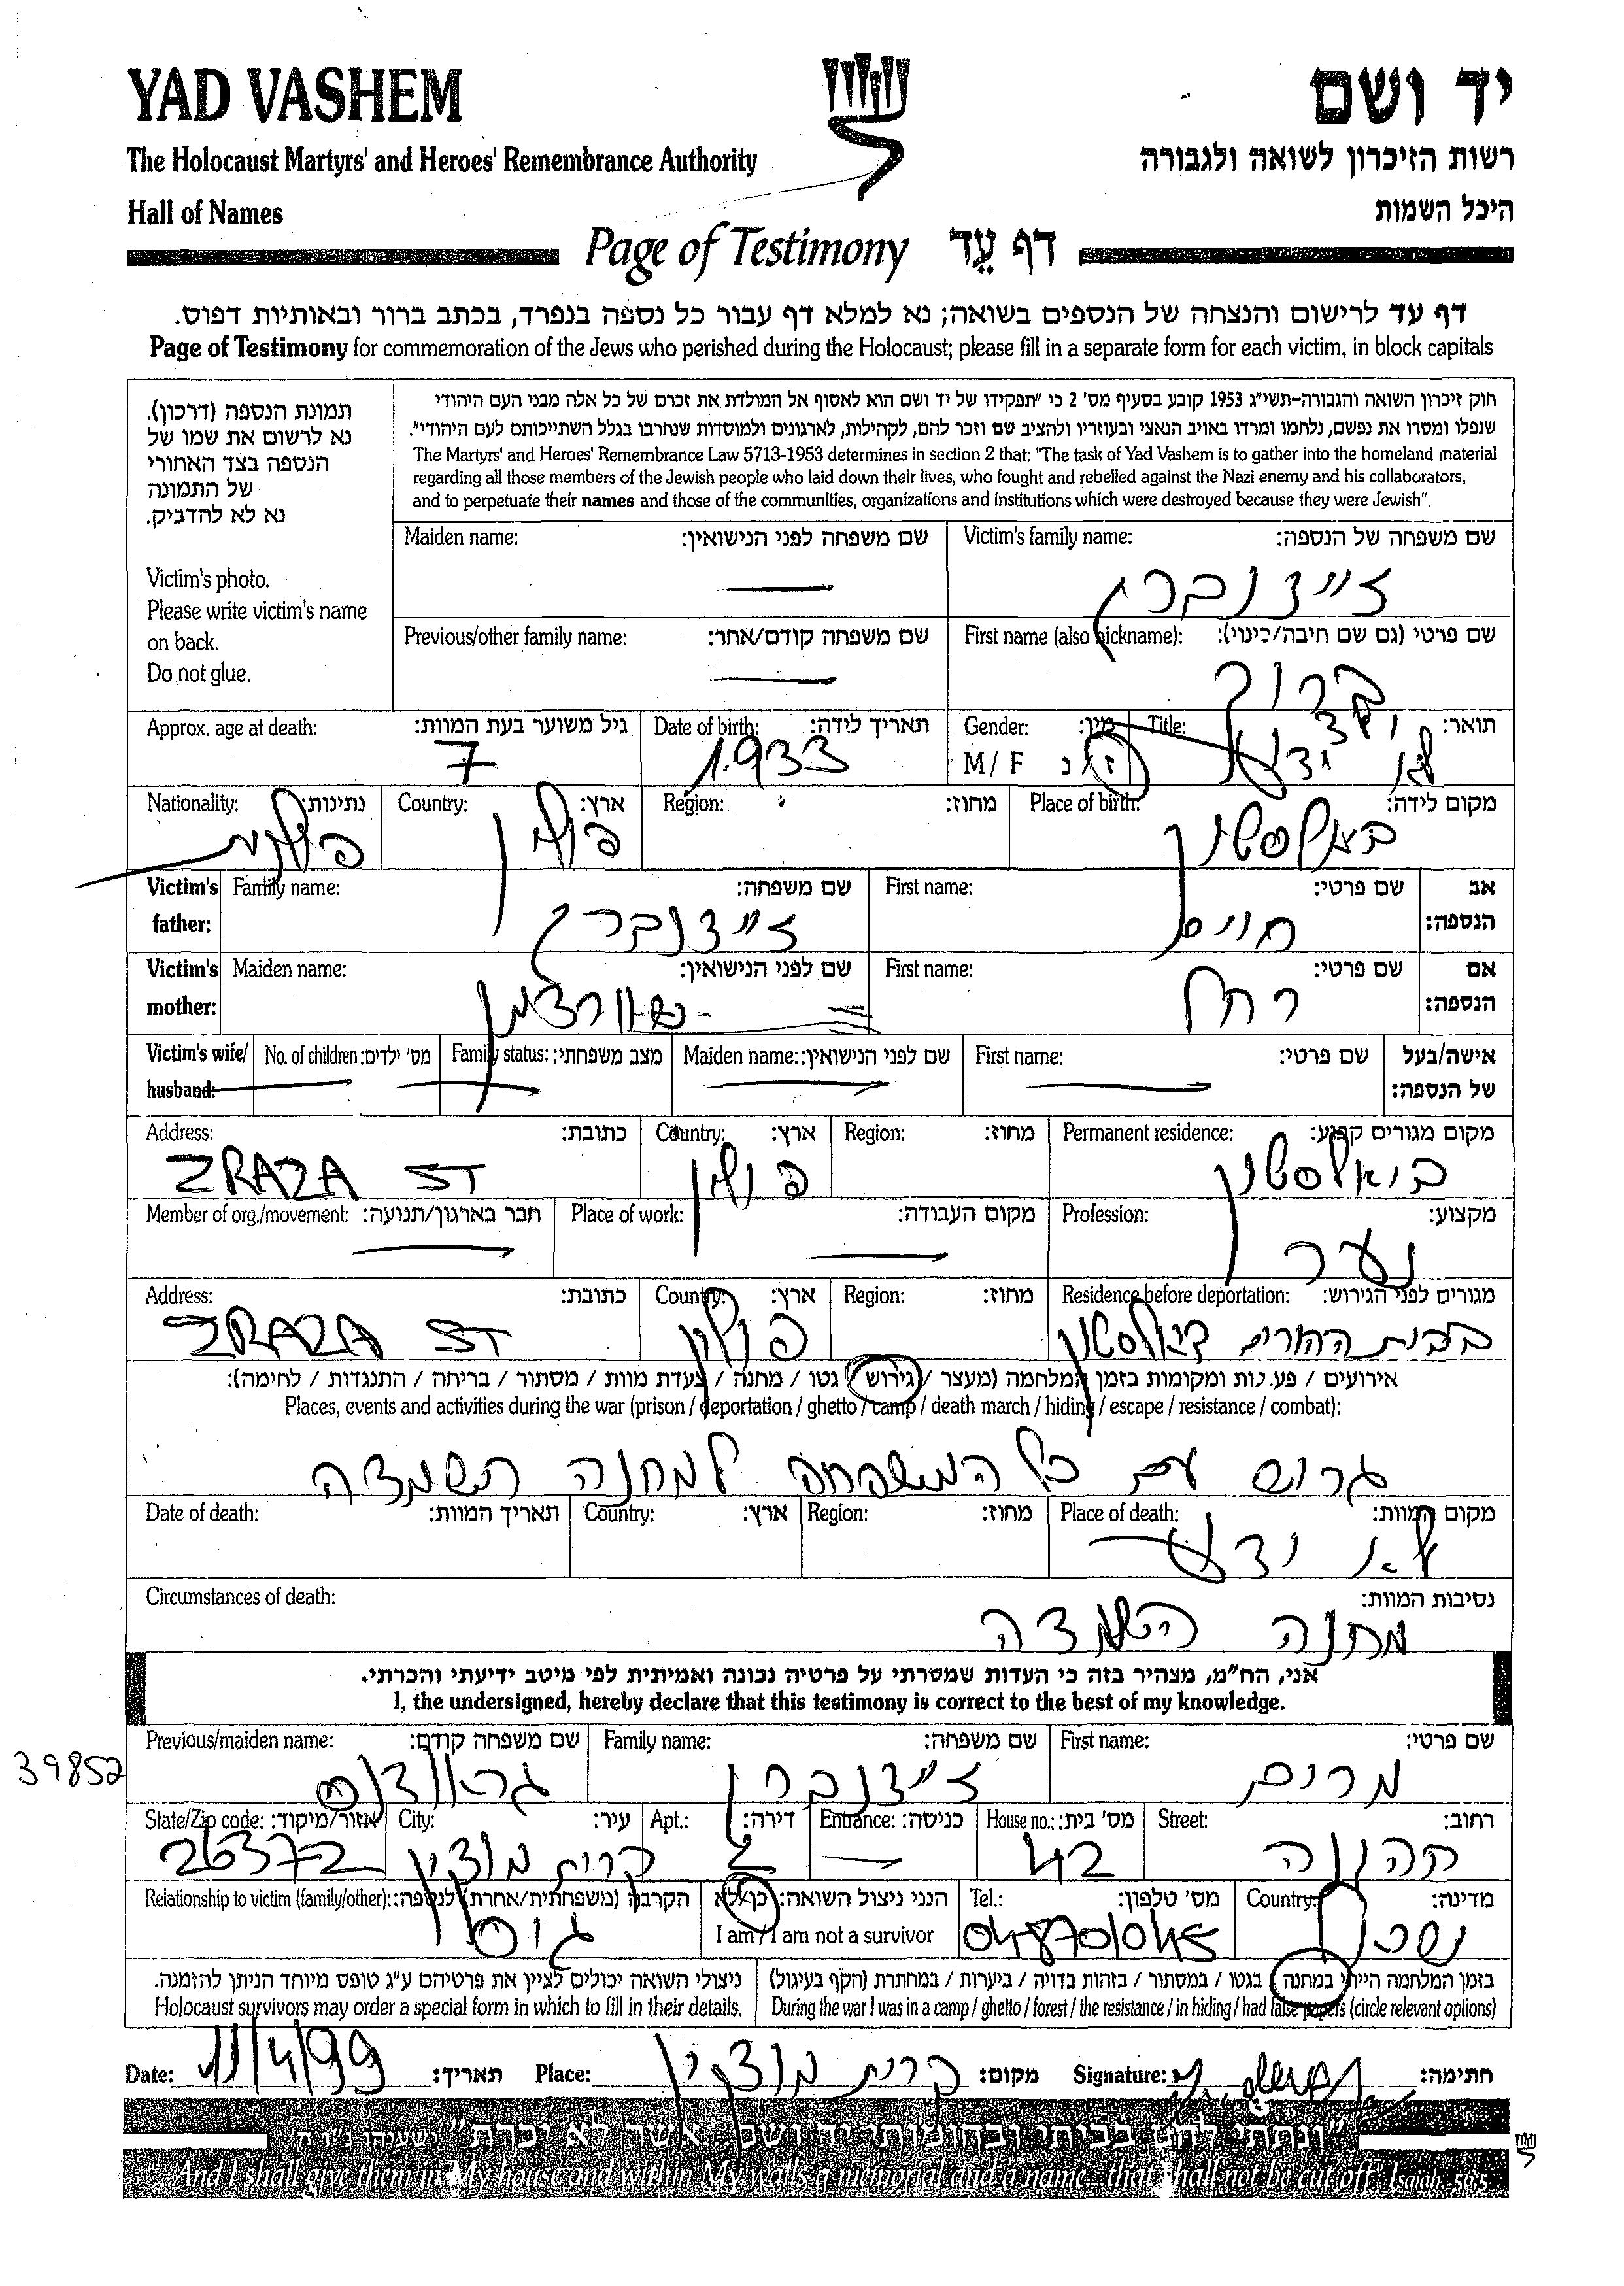 YAD VASHEM
יד ושם
The Holocaust Martyrs' and Heroes' Remembrance Authority
רשות הזיכרון לשואה ולגבורה
Hall of Names
היכל השמות
Page of Testimony דף עֵד
דף עד לרישום והנצחה של הנספים בשואה; נא למלא דף עבור כל נספה בנפרד, בכתב ברור ובאותיות דפוס.
Page of Testimony for commemoration of the Jews who perished during the Holocaust; please fill in a separate form for each victim, in block capitals
תמונת הנספה (דרכון).
נא לרשום את שמו של
הנספה בצד האחורי
של התמונה
נא לא להדביק.
Victim's photo.
Please write victim's name
on back.
Do not glue.
חוק זיכרון השואה והגבורה-תשי"ג 1953 קובע בסעיף מס' 2 כי "תפקידו של יד ושם הוא לאסוף אל המולדת את זכרם של כל אלה מבני העם היהודי
שנפלו ומסרו את נפשם, נלחמו ומרדו באויב הנאצי ובעוזריו ולהציב שם וזכר להם, לקהילות, לארגונים ולמוסדות שנחרבו בגלל השתייכותם לעם היהודי".
The Martyrs' and Heroes' Remembrance Law 5713-1953 determines in section 2 that: "The task of Yad Vashem is to gather into the homeland material
regarding all those members of the Jewish people who laid down their lives, who fought and rebelled against the Nazi enemy and his collaborators,
and to perpetuate their names and those of the communities, organizations and institutions which were destroyed because they were Jewish".
Maiden name: שם משפחה לפני הנישואין: Victim's family name: שם משפחה של הנספה:
זיידנברג
Previous/other family name: שם משפחה קודם/אחר: First name (also nickname): שם פרטי (גם שם חיבה/כינוי):
ברוך
Approx. age at death: גיל משוער בעת המוות: Date of birth: תאריך לידה: Gender: מין: Title: תואר:
7 1933 M / F ז/נ לא ידוע
Nationality: נתינות: Country: ארץ: Region: מחוז: Place of birth: מקום לידה:
פולנית פולין ביאלסטוק
Victim's father: Family name: שם משפחה: First name: שם פרטי: אב הנספה:
זיידנברג חיים
Victim's mother: Maiden name: שם לפני הנישואין: First name: שם פרטי: אם הנספה:
רחל
Victim's wife/ husband: No. of children: מס' ילדים: Family status: מצב משפחתי: Maiden name: שם לפני הנישואין: First name: שם פרטי: אישה/בעל של הנספה:
Address: כתובת: Country: ארץ: Region: מחוז: Permanent residence: מקום מגורים קבוע:
ZRAZA ST פולין ביאלסטוק
Member of org./movement: חבר בארגון/תנועה: Place of work: מקום העבודה: Profession: מקצוע:
נער
Address: כתובת: Country: ארץ: Region: מחוז: Residence before deportation: מגורים לפני הגירוש:
ZRAZA ST פולין בבית ההורים
אירועים / פעילות ומקומות בזמן המלחמה (מעצר / גירוש / גטו / מחנה / צעדת מוות / מסתור / בריחה / התנגדות / לחימה):
Places, events and activities during the war (prison / deportation / ghetto / camp / death march / hiding / escape / resistance / combat):
גרוש עם כל המשפחה למחנה השמדה
Date of death: תאריך המוות: Country: ארץ: Region: מחוז: Place of death: מקום המוות:
לא ידוע
Circumstances of death: נסיבות המוות:
מחנה השמדה
אני, הח"מ, מצהיר בזה כי העדות שמסרתי על פרטיה נכונה ואמיתית לפי מיטב ידיעתי והכרתי.
I, the undersigned, hereby declare that this testimony is correct to the best of my knowledge.
Previous/maiden name: שם משפחה קודם: Family name: שם משפחה: First name: שם פרטי:
39852
זיידנברג מרים
State/Zip code: אזור/מיקוד: City: עיר: Apt.: דירה: Entrance: כניסה: House no.: מס' בית: Street: רחוב:
26372 קרית מוצקין 2 42
Relationship to victim (family/other): הקרבה (משפחתית/אחרת) לנספה: הנני ניצול השואה: כן/לא Tel.: מס' טלפון: Country: מדינה:
גיסה I am / I am not a survivor 048701045 ישראל
ניצולי השואה יכולים לציין את פרטיהם ע"ג טופס מיוחד הניתן להזמנה.
Holocaust survivors may order a special form in which to fill in their details.
בזמן המלחמה הייתי במחנה / בגטו / במסתור / בזהות בדויה / ביערות / במחתרת (הקף בעיגול)
During the war I was in a camp / ghetto / forest / the resistance / in hiding / had false papers (circle relevant options)
Date: 11/4/99 תאריך: Place: קרית מוצקין מקום: Signature: חתימה:
"ונתתי להם בביתי ובחומותי יד ושם... אשר לא יכרת" ישעיהו נ"ו ה'
"And I shall give them in My house and within My walls a memorial and a name... that shall not be cut off" Isaiah 56:5